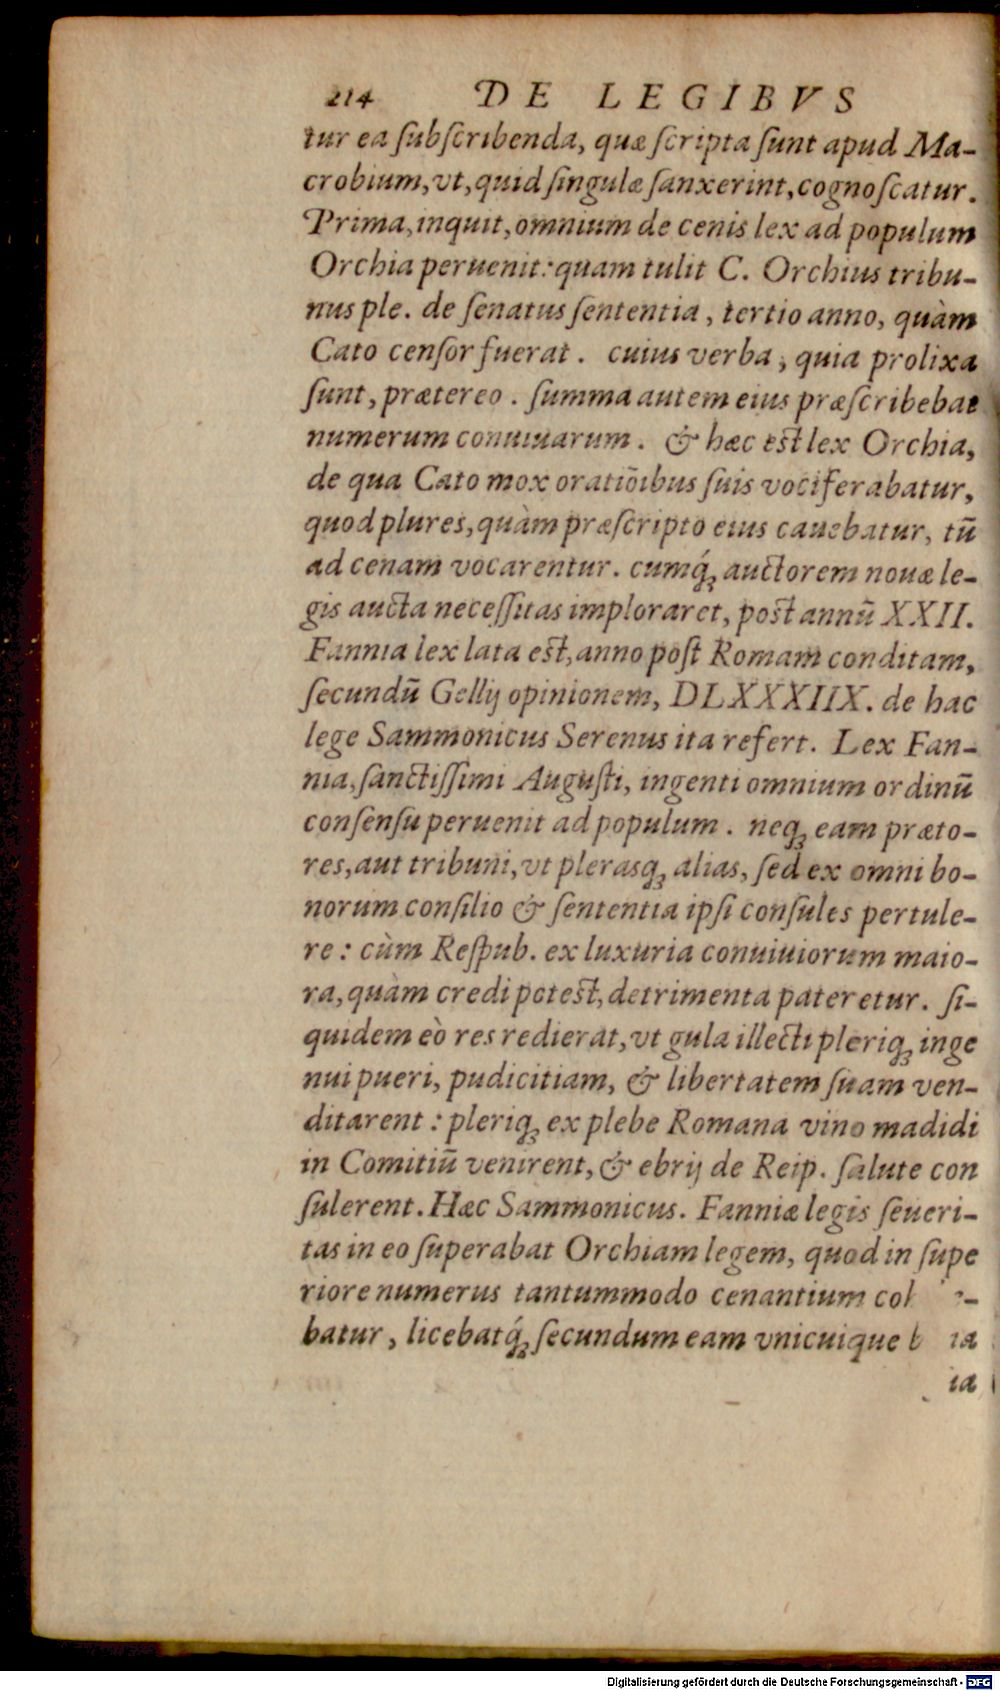 214 DE LEGIBVS
tur ea ſubſcribenda, quæ ſcripta ſunt apud Ma-
crobium, vt, quid ſingulæ ſanxerint, cognoſcatur.
Prima, inquit, omnium de cenis lex ad populum
Orchia peruenit: quam tulit C. Orchius tribu-
nus ple. de ſenatus ſententia, tertio anno, quàm
Cato cenſor fuerat. cuius verba, quia prolixa
ſunt, prætereo. ſumma autem eius præſcribebat
numerum conuiuarum. & hæc est lex Orchia,
de qua Cato mox oratiōibus ſuis vociferabatur,
quod plures, quàm præſcripto eius cauebatur, tū
ad cenam vocarentur. cumq́; auctorem nouæ le-
gis aucta neceſſitas imploraret, post annū XXII.
Fannia lex lata est, anno poſt Romam conditam,
ſecundū Gellij opinionem, DLXXXIIX. de hac
lege Sammonicus Serenus ita refert. Lex Fan-
nia, ſanctiſſimi Auguſti, ingenti omnium ordinū
conſenſu peruenit ad populum. neq; eam præto-
res, aut tribuni, vt pleraſq; alias, ſed ex omni bo-
norum conſilio & ſententia ipſi conſules pertule-
re: cùm Reſpub. ex luxuria conuiuiorum maio-
ra, quàm credi potest, detrimenta pateretur. ſi-
quidem eò res redierat, vt gula illecti pleriq; inge
nui pueri, pudicitiam, & libertatem ſuam ven-
ditarent: pleriq; ex plebe Romana vino madidi
in Comitiū venirent, & ebrij de Reip. ſalute con
ſulerent. Hæc Sammonicus. Fanniæ legis ſeueri-
tas in eo ſuperabat Orchiam legem, quod in ſupe
riore numerus tantummodo cenantium
batur, licebatq́; ſecundum eam vnicuique